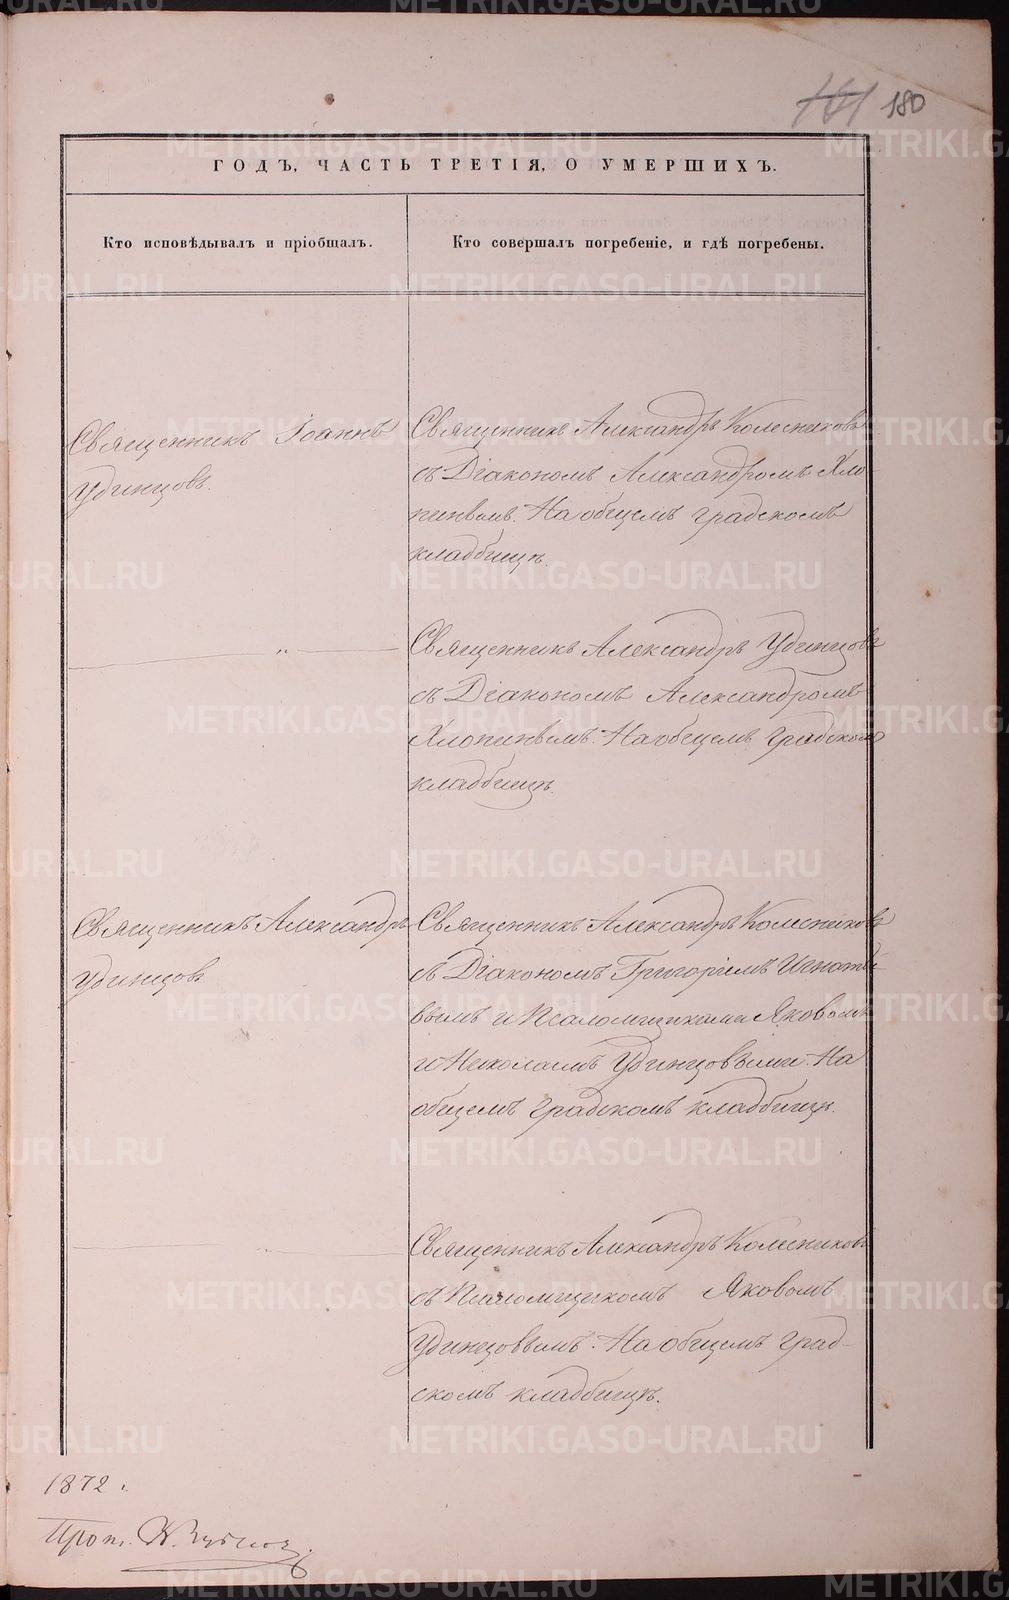 161 180
ГОДЪ, ЧАСТЬ ТРЕТІЯ, О УМЕРШИХЪ.
Кто исповѣдывалъ и пріобщалъ.
Кто совершалъ погребеніе, и гдѣ погребены.
Священникъ Іоаннъ
Удинцовъ.
Священникъ Александръ Колесниковъ
съ Діакономъ Александромъ Хло-
пинымъ. На общемъ градскомъ
кладбищѣ.
"
Священникъ Александръ Удинцовъ
съ Діакономъ Александромъ
Хлопинымъ. На общемъ градском
кладбищѣ.
Священникъ Александръ
Удинцов
Священникъ Александръ Колесниковъ
съ Діакономъ Григоріемъ Игнатье-
вымъ и Псаломщиками Яковомъ
и Николаемъ Удинцовыми. На
общемъ градскомъ кладбищѣ.
Священникъ Александръ Колесниковъ
съ Псаломщикомъ Яковомъ
Удинцовымъ. На общемъ град-
скомъ кладбищѣ.
1872.
Прот.
METRIKI.GASO-URAL.RU